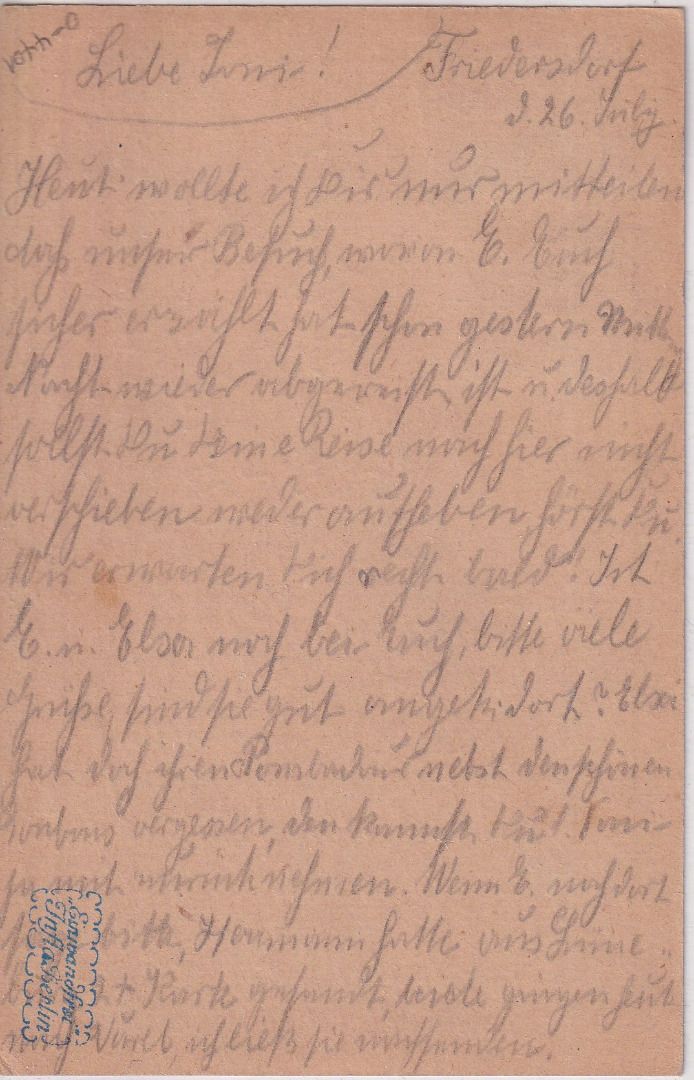 Liebe Toni! Friedersdorf
d. 26. July
Heut wollte ich Dir nur mitteilen
daß unser Besuch, wovon E. Euch
sicher erzählt hat schon gestern Mitt
Nacht wieder abgereist ist u. deshalb
sollst Du Deine Reise nach hier nicht
verschieben weder aufheben, hörst Du.
Wir erwarten Dich recht bald! Ist
E. u. Elsa noch bei Euch, bitte viele
Grüße, sind sie gut angek. dort? Elsi
hat doch ihren Pompadour nebst den schönen
vergessen, den kannst Du l. Toni
ja mit zurücknehmen. Wenn E. noch dort
bitte, Hermann hatte aus Lüne-
Karte gesandt, beide gingen heut
nach ich ließ sie nachsenden.